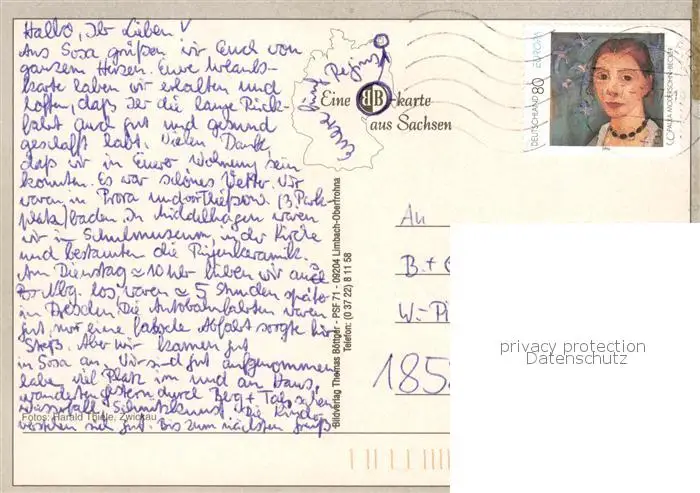 Hallo, Ihr Lieben!
Aus Sosa grüßen wir Euch von
ganzem Herzen. Eure Urlaubs-
karte haben wir erhalten und
hoffen, daß Ihr die lange Rück-
fahrt auch gut und gesund
geschafft habt. Vielen Dank,
daß wir in Eurer Wohnung sein
konnten. Es war schönes Wetter. Wir
waren in Prora und Thiessow (3. Park-
platz) baden. In Middelhagen waren
wir im Schulmuseum, in der Kirche
und bestaunten die Rügenkeramik.
Am Dienstag ≈ 10 Uhr fuhren wir
los, waren ≈ 5 Stunden später
in Dresden. Die Autobahnfahrten waren
gut, nur eine falsche Abfahrt sorgte für
Streß. Aber wir kamen gut
in Sosa an. Wir sind gut aufgenommen,
haben viel Platz im und am Haus,
wanderten gestern durch Berg + Tal
Wasserfall, Schnitzkunst. Die Kinder
verstehen sich gut. Bis zum nächsten
Eine BB-karte
aus Sachsen
DEUTSCHLAND 80 EUROPA
PAULA MODERSOHN-BECKER
An
B. +
W.-Pi
185
Bildverlag Thomas Böttger - PSF 71 - 09204 Limbach-Oberfrohna
Telefon: (0 37 22) 8 11 58
Fotos: Harald Thiele, Zwickau
privacy protection
Datenschutz